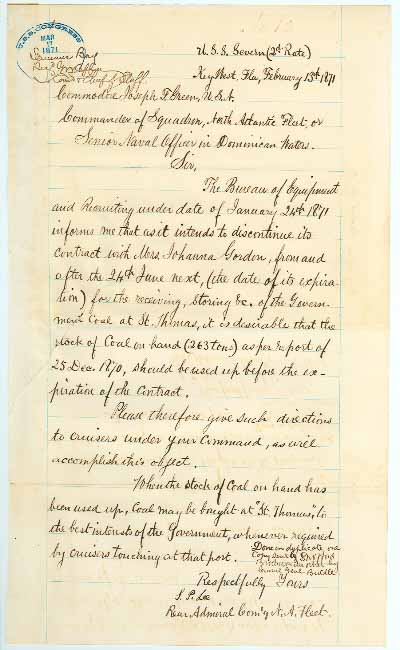 U.S.S. CONGRESS
MAR
17
1871
U.S.S. Severn (2d Rate)
Key West, Fla, February 13th 1871
Commodore Joseph F. Green, U.S.N.
Commander of Squadron, North Atlantic Fleet, or
Senior Naval Officer in Dominican Waters.
Sir,
The Bureau of Equipment
and Recruiting under date of January 24th 1871
informs me that as it intends to discontinue its
contract with Mrs Johanna Gordon, from and
after the 24th June next, (the date of its expira-
tion) for the receiving, storing &c. of the Govern-
ment Coal at St. Thomas, it is desirable that the
stock of Coal on hand (263 tons) as per report of
25 Dec. 1870, should be used up before the ex-
piration of the Contract.
Please therefore give such directions
to cruisers under your Command, as will
accomplish this object.
When the stock of Coal on hand has
been used up, Coal may be bought at "St. Thomas," to
the best interests of the Government, whenever required
by cruisers touching at that port.
Done in duplicate one
Copy sent
Respectfully Yours
S. P. Lee
Rear Admiral Com'g N. A. Fleet.